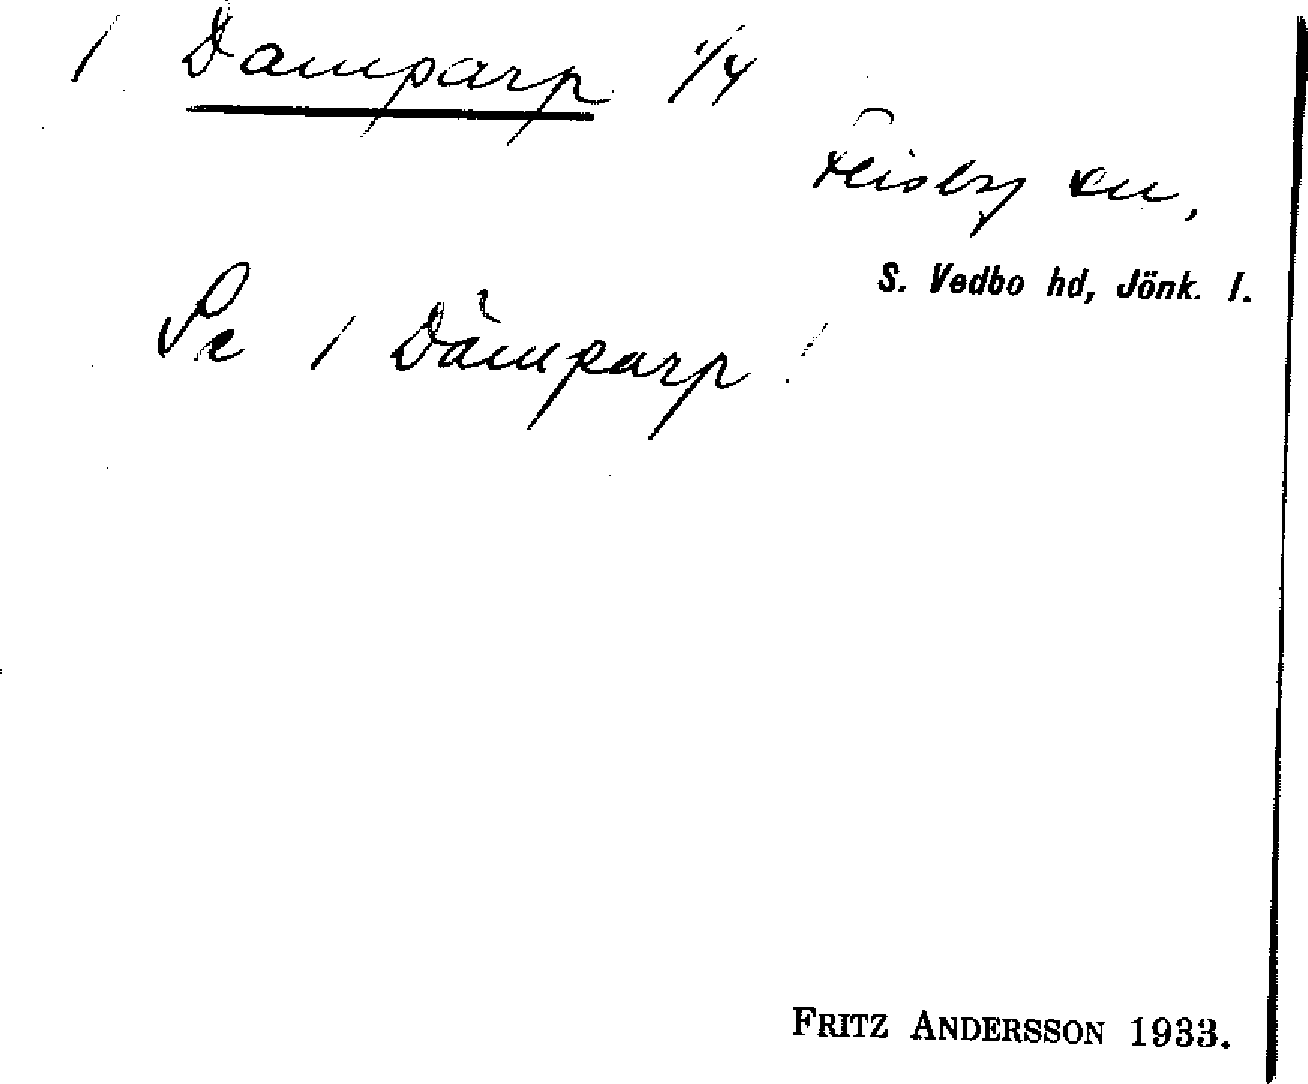 / Damparp 1/4
Flisby sn,
S. Vedbo hd, Jönk. l.
Se / Dämparp !
FRITZ ANDERSSON 1933.